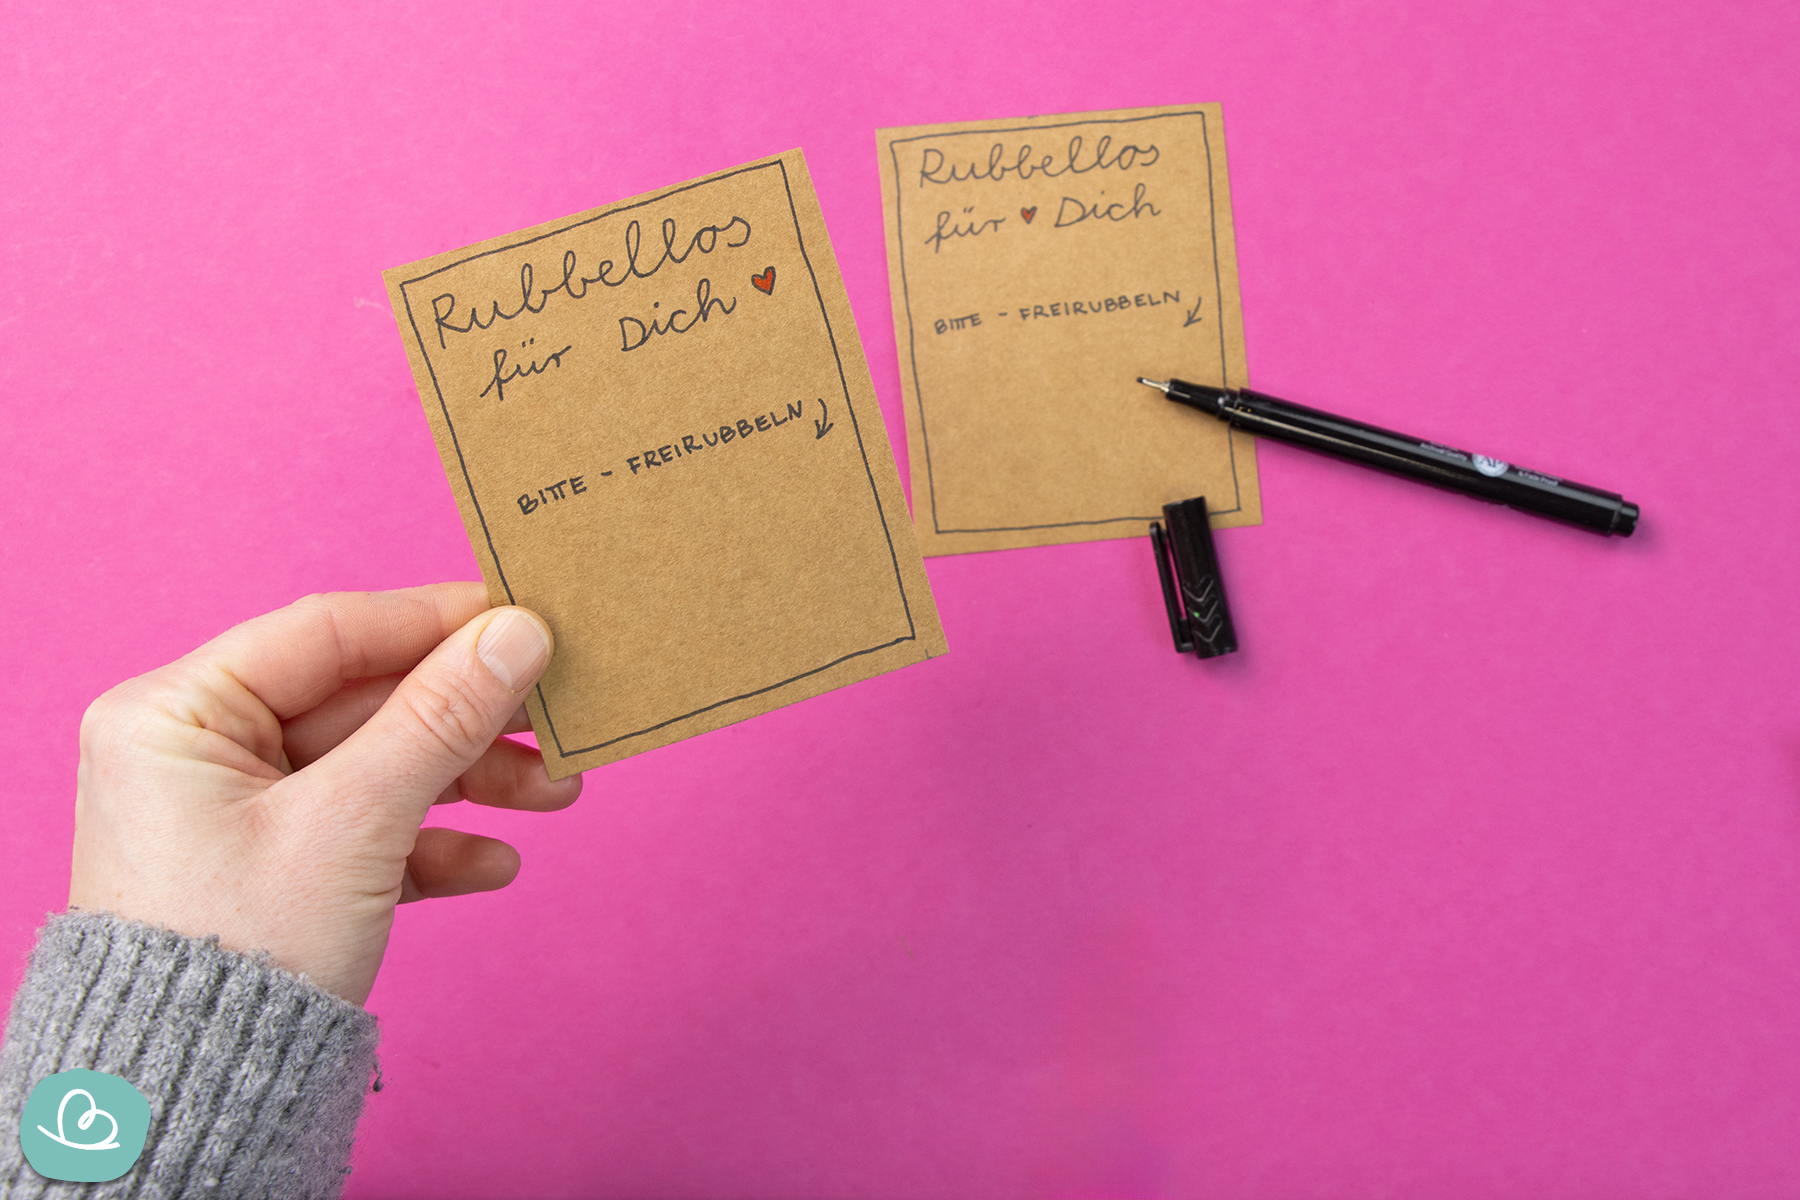 Rubbellos
für Dich ♥
BITTE - FREIRUBBELN
Rubbellos
für ♥ Dich
BITTE - FREIRUBBELN